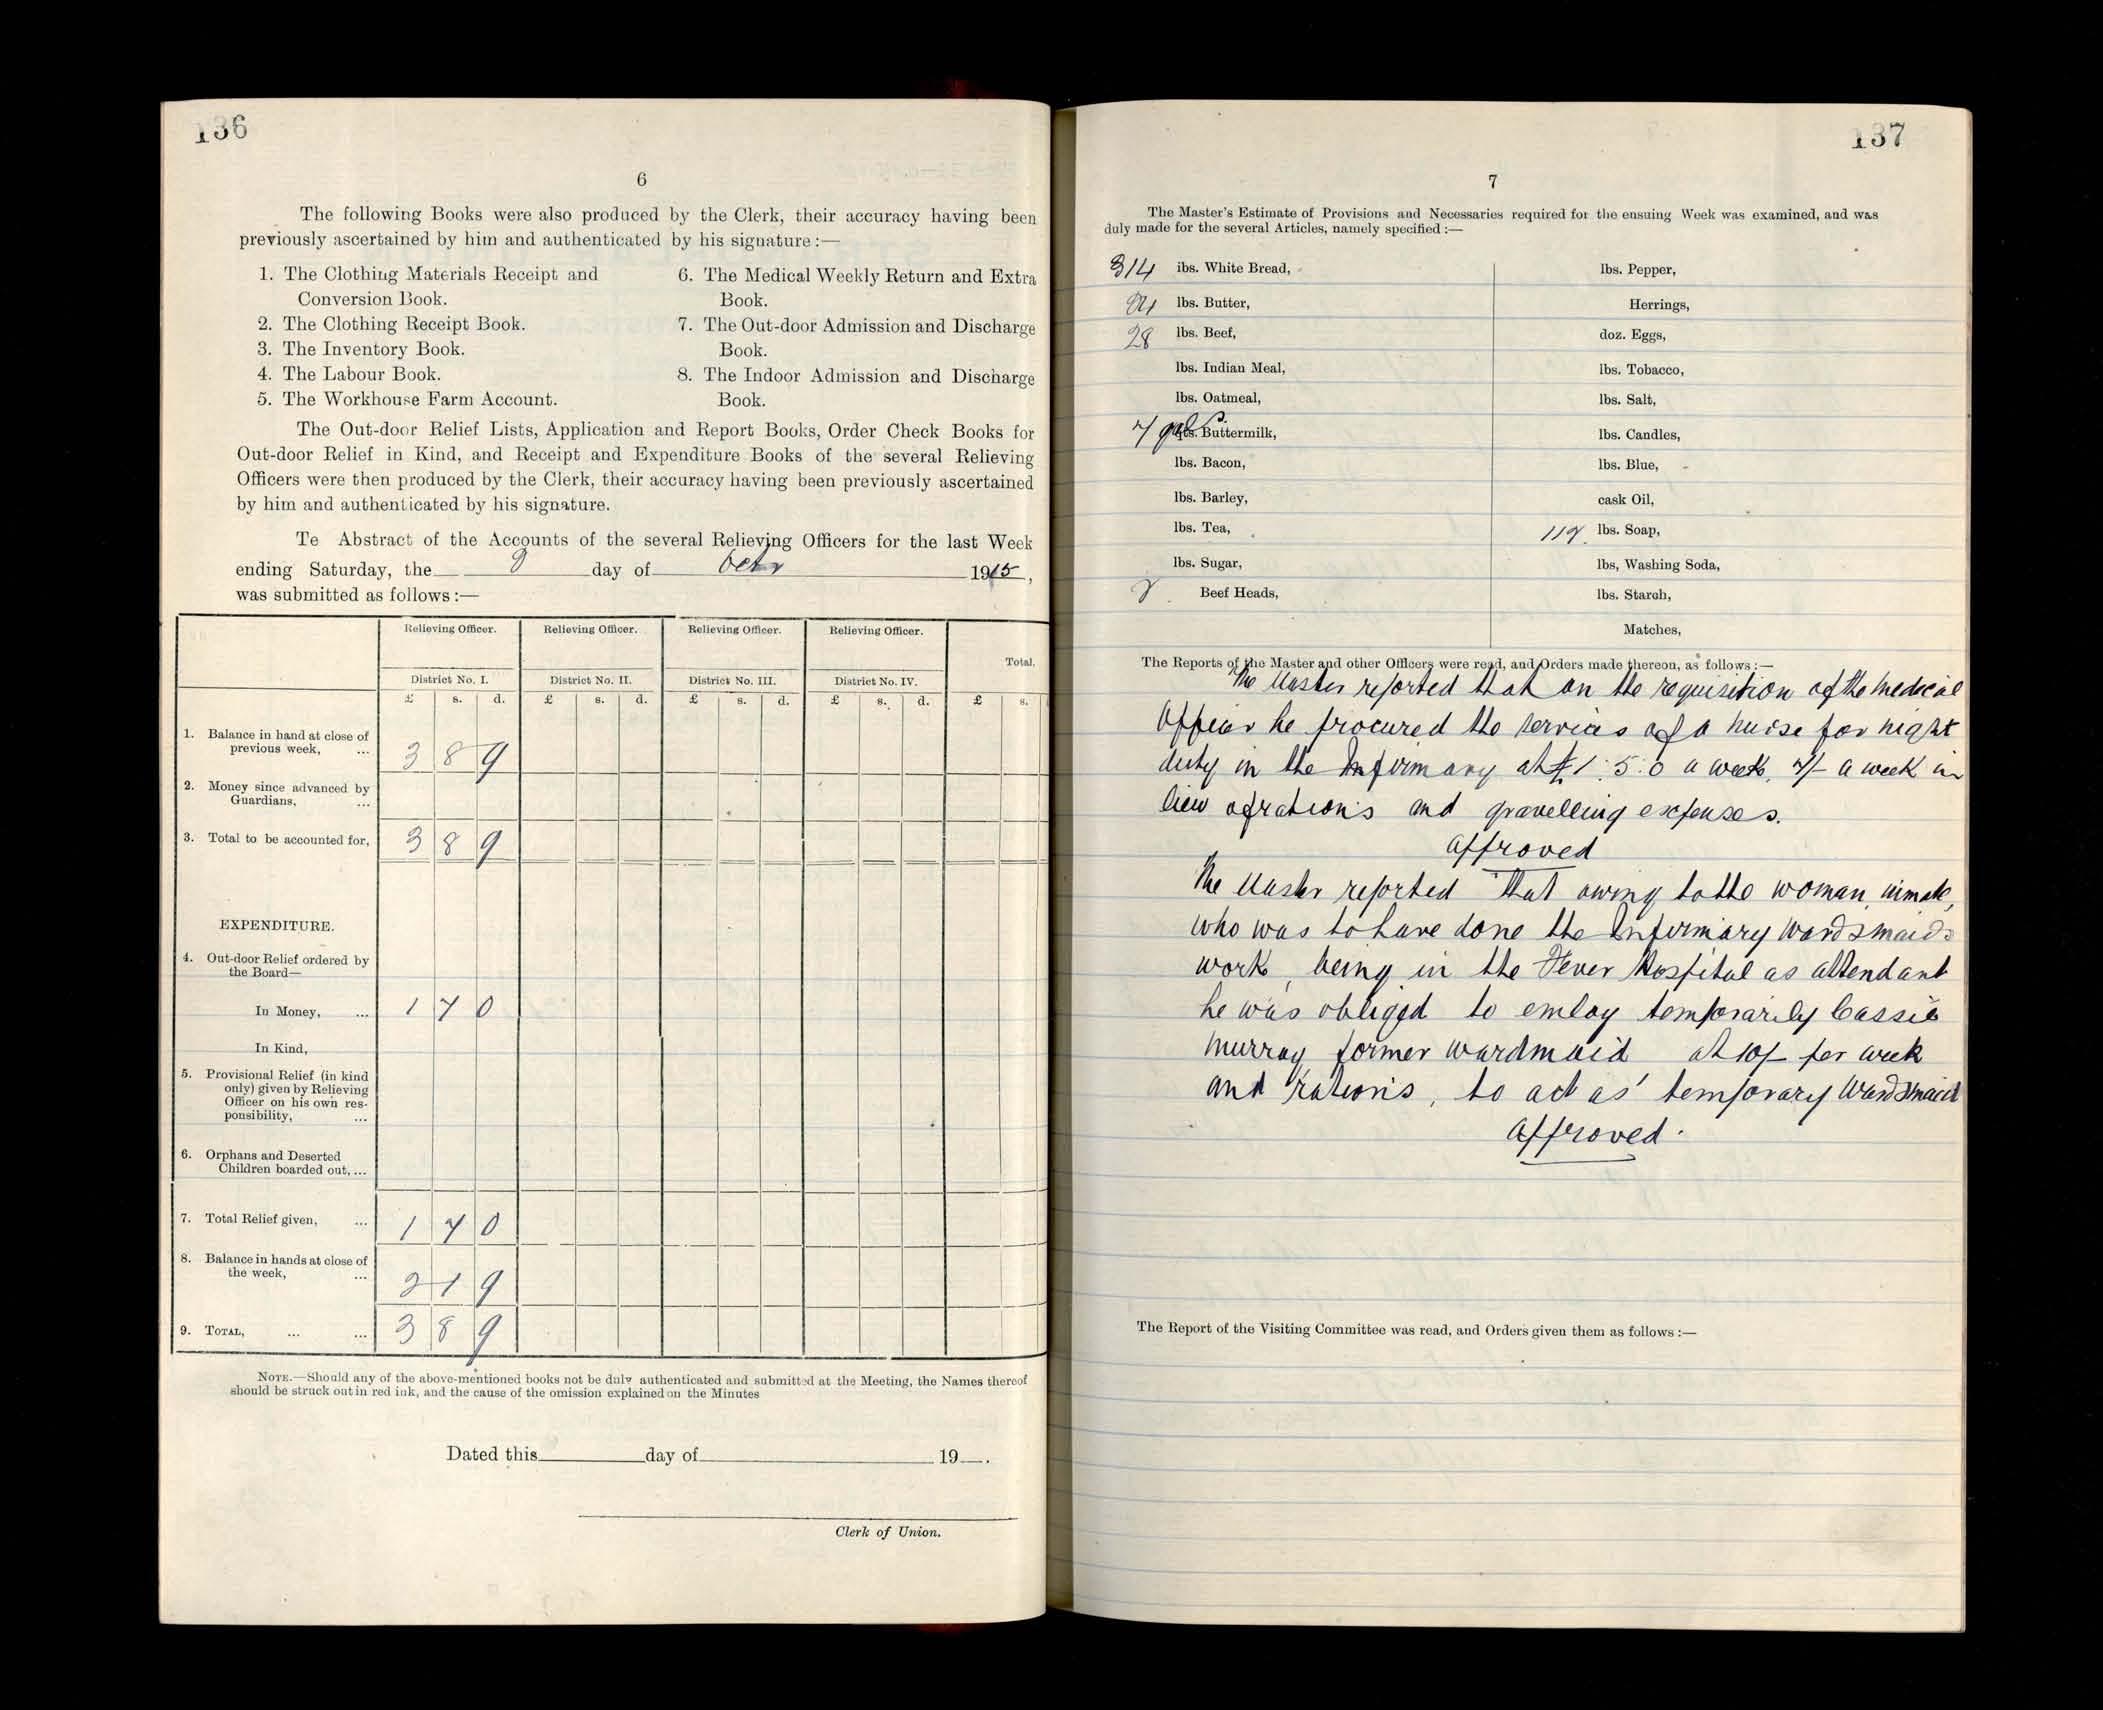 136
6
The following Books were also produced by the Clerk, their accuracy having been
previously ascertained by him and authenticated by his signature :—
1. The Clothing Materials Receipt and
Conversion Book.
2. The Clothing Receipt Book.
3. The Inventory Book.
4. The Labour Book.
5. The Workhouse Farm Account.
6. The Medical Weekly Return and Extra
Book.
7. The Out-door Admission and Discharge
Book.
8. The Indoor Admission and Discharge
Book.
The Out-door Relief Lists, Application and Report Books, Order Check Books for
Out-door Relief in Kind, and Receipt and Expenditure Books of the several Relieving
Officers were then produced by the Clerk, their accuracy having been previously ascertained
by him and authenticated by his signature.
Te Abstract of the Accounts of the several Relieving Officers for the last Week
ending Saturday, the 9 day of Octr 1915,
was submitted as follows :—
Relieving Officer. Relieving Officer. Relieving Officer. Relieving Officer.
Total.
District No. I. District No. II. District No. III. District No. IV.
£ s. d. £ s. d. £ s. d. £ s. d. £ s.
1. Balance in hand at close of
previous week, ... 3 8 9
2. Money since advanced by
Guardians, ...
3. Total to be accounted for, 3 8 9
EXPENDITURE.
4. Out-door Relief ordered by
the Board—
In Money, ... 1 7 0
In Kind,
5. Provisional Relief (in kind
only) given by Relieving
Officer on his own res-
ponsibility, ...
6. Orphans and Deserted
Children boarded out, ...
7. Total Relief given, ... 1 7 0
8. Balance in hands at close of
the week, ... 2 1 9
9. TOTAL, ... ... 3 8 9
NOTE.—Should any of the above-mentioned books not be duly authenticated and submitted at the Meeting, the Names thereof
should be struck out in red ink, and the cause of the omission explained on the Minutes
Dated this day of 19 .
Clerk of Union.
137
7
The Master's Estimate of Provisions and Necessaries required for the ensuing Week was examined, and was
duly made for the several Articles, namely specified :—
314 lbs. White Bread,
lbs. Butter,
28 lbs. Beef,
lbs. Indian Meal,
lbs. Oatmeal,
7 gals qts. Buttermilk,
lbs. Bacon,
lbs. Barley,
lbs. Tea,
lbs. Sugar,
2 Beef Heads,
lbs. Pepper,
Herrings,
doz. Eggs,
lbs. Tobacco,
lbs. Salt,
lbs. Candles,
lbs. Blue,
cask Oil,
112 lbs. Soap,
lbs, Washing Soda,
lbs. Starch,
Matches,
The Reports of the Master and other Officers were read, and Orders made thereon, as follows :—
The Master reported that on the requisition of the Medical
Officer he procured the services of a nurse for night
duty in the Infirmary at £1 : 5 : 0 a week, 7/- a week in
lieu of rations and travelling expenses.
Approved
The Master reported that owing to the woman inmate,
who was to have done the Infirmary Wardsmaids
work, being in the Fever Hospital as attendant
he was obliged to emloy temporarily Cassie
Murray former wardmaid at 10/- per week
and rations, to act as temporary Wardsmaid
Approved.
The Report of the Visiting Committee was read, and Orders given them as follows :—